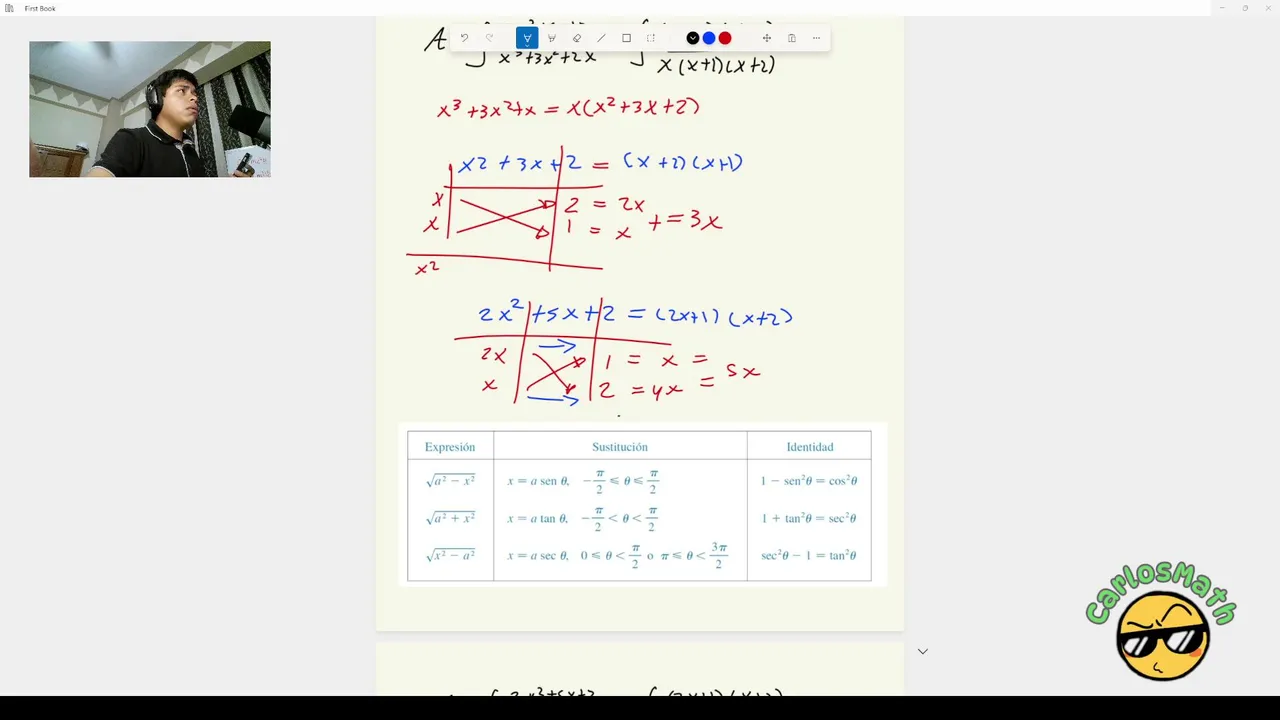 First Book
A ∫ x³+3x²+2x ∫ x(x+1)(x+2)
x³+3x²+x = x(x²+3x+2)
x2 + 3x + 2 = (x+2)(x+1)
x 2 = 2x
x 1 = x + = 3x
x²
2x² + 5x + 2 = (2x+1) (x+2)
2x 1 = x =
x 2 = 4x = 5x
Expresión Sustitución Identidad
√(a² − x²) x = a sen θ, −π/2 ≤ θ ≤ π/2 1 − sen²θ = cos²θ
√(a² + x²) x = a tan θ, −π/2 < θ < π/2 1 + tan²θ = sec²θ
√(x² − a²) x = a sec θ, 0 ≤ θ < π/2 o π ≤ θ < 3π/2 sec²θ − 1 = tan²θ
CarlosMath